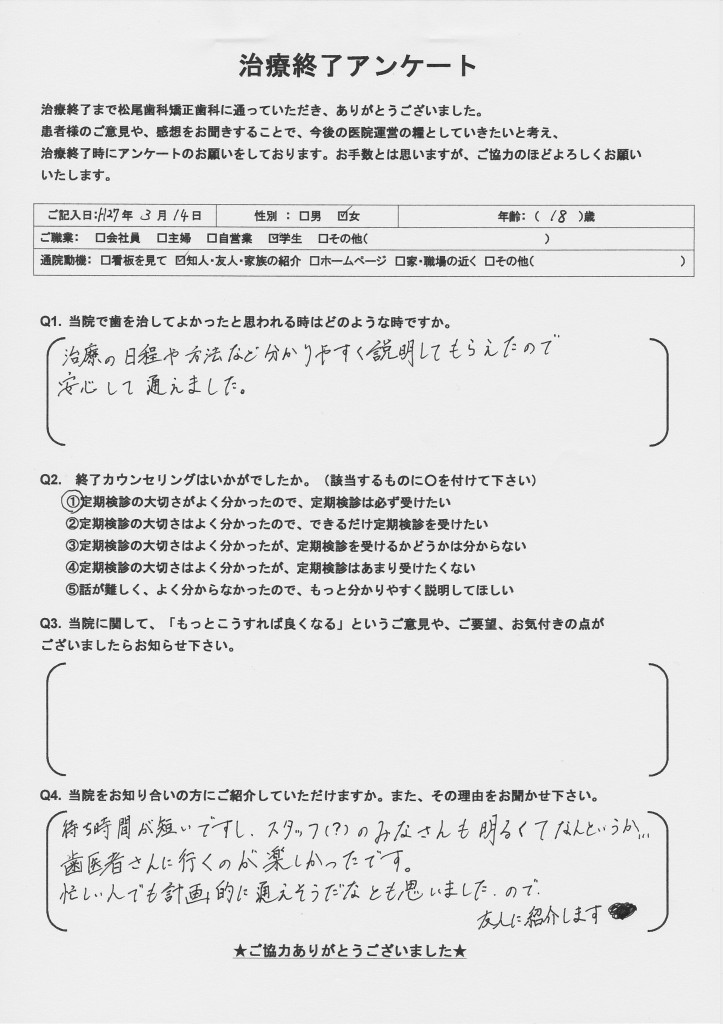 治療終了アンケート
治療終了まで松尾歯科矯正歯科に通っていただき、ありがとうございました。
患者様のご意見や、感想をお聞きすることで、今後の医院運営の糧としていきたいと考え、
治療終了時にアンケートのお願いをしております。お手数とは思いますが、ご協力のほどよろしくお願い
いたします。
ご記入日:H27年 3月 14日 性別 : □男 ☑女 年齢:( 18 )歳
ご職業: □会社員 □主婦 □自営業 ☑学生 □その他( )
通院動機: □看板を見て ☑知人・友人・家族の紹介 □ホームページ □家・職場の近く □その他( )
Q1. 当院で歯を治してよかったと思われる時はどのような時ですか。
治療の日程や方法など分かりやすく説明してもらえたので
安心して通えました。
Q2. 終了カウンセリングはいかがでしたか。(該当するものに〇を付けて下さい)
①定期検診の大切さがよく分かったので、定期検診は必ず受けたい
②定期検診の大切さはよく分かったので、できるだけ定期検診を受けたい
③定期検診の大切さはよく分かったが、定期検診を受けるかどうかは分からない
④定期検診の大切さはよく分かったが、定期検診はあまり受けたくない
⑤話が難しく、よく分からなかったので、もっと分かりやすく説明してほしい
Q3. 当院に関して、「もっとこうすれば良くなる」というご意見や、ご要望、お気付きの点が
ございましたらお知らせ下さい。
Q4. 当院をお知り合いの方にご紹介していただけますか。また、その理由をお聞かせ下さい。
待ち時間が短いですし、スタッフ(?)のみなさんも明るくてなんというか...
歯医者さんに行くのが楽しかったです。
忙しい人でも計画的に通えそうだなとも思いました、ので、
友人に紹介します
★ご協力ありがとうございました★